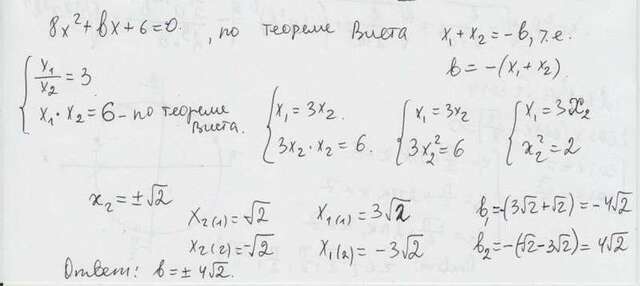 8x²+bx+6=0. , по теореме Виета x₁+x₂=-b, т.е.
b=-(x₁+x₂)
{ x₁/x₂ = 3
x₁·x₂=6 - по теореме Виета.
{ x₁=3x₂.
3x₂·x₂=6.
{ x₁=3x₂
3x₂²=6
{ x₁=3x₂
x₂²=2
x₂=±√2
x₂₍₁₎=√2 x₁₍₁₎=3√2 b₁=-(3√2+√2)=-4√2
x₂₍₂₎=-√2 x₁₍₂₎=-3√2 b₂=-(-√2-3√2)=4√2
Ответ: b=±4√2.